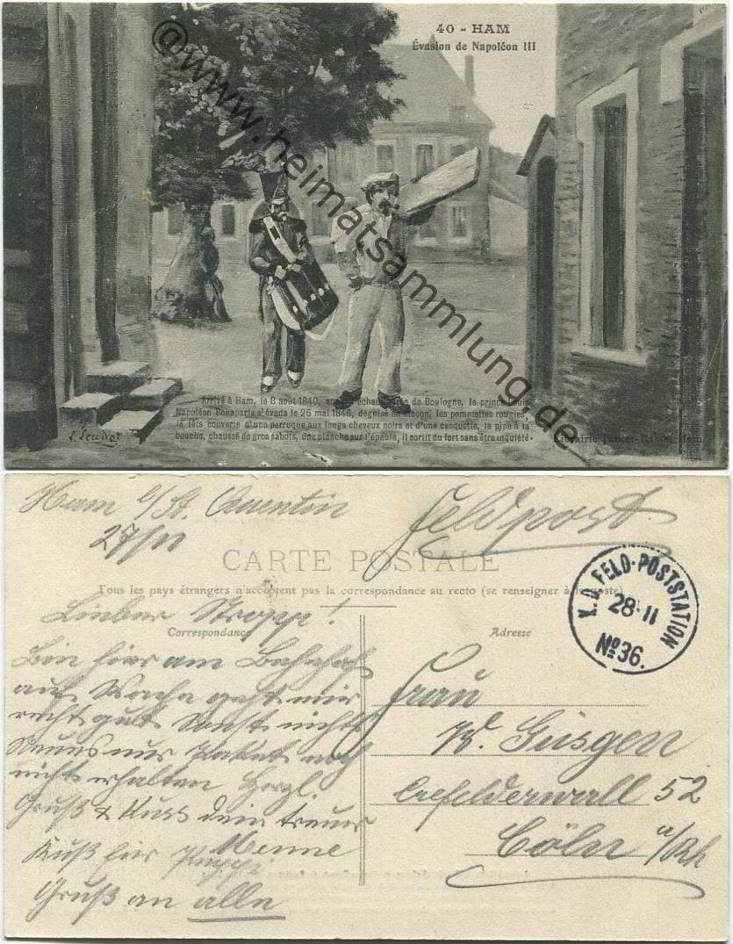 40 - HAM
Évasion de Napoléon III
@www.heimatsammlung.de
Arrivé à Ham, le 8 août 1840, de Boulogne, le prince Louis
Napoléon Bonaparte s'évada le 25 mai 1846, déguisé en maçon, les pommettes rougies,
la tête couverte d'une perruque aux longs cheveux noirs et d'une casquette, la pipe à la
bouche, chaussé de gros sabots, une planche sur l'épaule, il sortit du fort sans être inquiété.
Librairie
Ham b/St. Quentin
27/11
Feldpost
CARTE POSTALE
Tous les pays étrangers n'acceptent pas la correspondance au recto (se renseigner à la poste)
K.D. FELD-POSTSTATION
28·11
No 36.
Lieber Stropp!
Correspondance
Adresse
Bin hier am Bahnhof
auf Wache geht mir
recht gut sonst nichts
Neues nur Paket noch
nicht erhalten Herzl.
Gruß & Kuss dein treuer
Menne
Kuß für Puppi
Gruß an alle
Frau
W. Giesgen
Crefelderwall 52
Cöln a/Rh